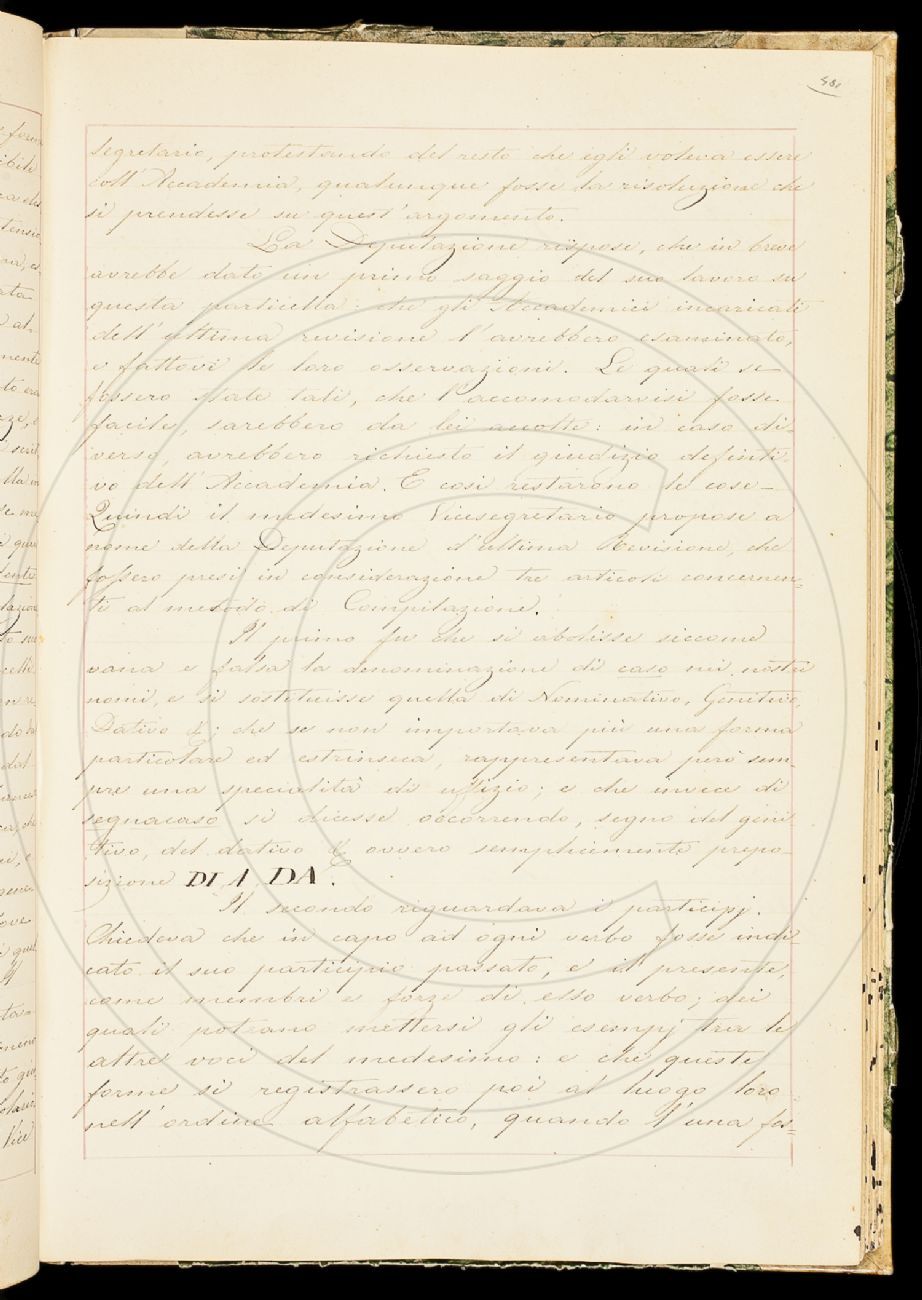 Segretario, protestando del resto che egli voleva essere
coll'Accademia, qualunque fosse la risoluzione che
si prendesse su quest'argomento.
La Deputazione rispose, che in breve
avrebbe dato un primo saggio del suo lavoro su
questa particella: che gli Accademici incaricati
dell'ultima revisione l'avrebbero esaminato,
e fattovi le loro osservazioni. Le quali se
fossero state tali, che l'accomodarvisi fosse
facile, sarebbero da lei accolte: in caso di-
verso, avrebbero richiesto il giudizio definiti-
vo dell'Accademia. E così restarono le cose—
Quindi il medesimo Vicesegretario propose a
nome della Deputazione d'ultima Revisione, che
fossero presi in considerazione tre articoli concernen=
ti al metodo di Compilazione.
Il primo fu che si abolisse siccome
vana e falsa la denominazione di caso nei nostri
nomi, e si sostituisse quella di Nominativo, Genitivo,
Dativo &; che se non importava più una forma
particolare ed estrinseca, rappresentava però sem
pre una specialità di uffizio; e che invece di
segnacaso si dicesse occorrendo, segno del geni-
tivo, del dativo & ovvero semplicemente prepo-
sizione DI, A, DA.
Il secondo riguardava i participj.
Chiedeva che in capo ad ogni verbo fosse indi
cato il suo participio passato, e il presente,
come membri e forze di esso verbo; dei
quali potrano mettersi gli esempj tra le
altre voci del medesimo: e che queste
forme si registrassero poi al luogo loro
nell'ordine alfabetico, quando l'una fos=